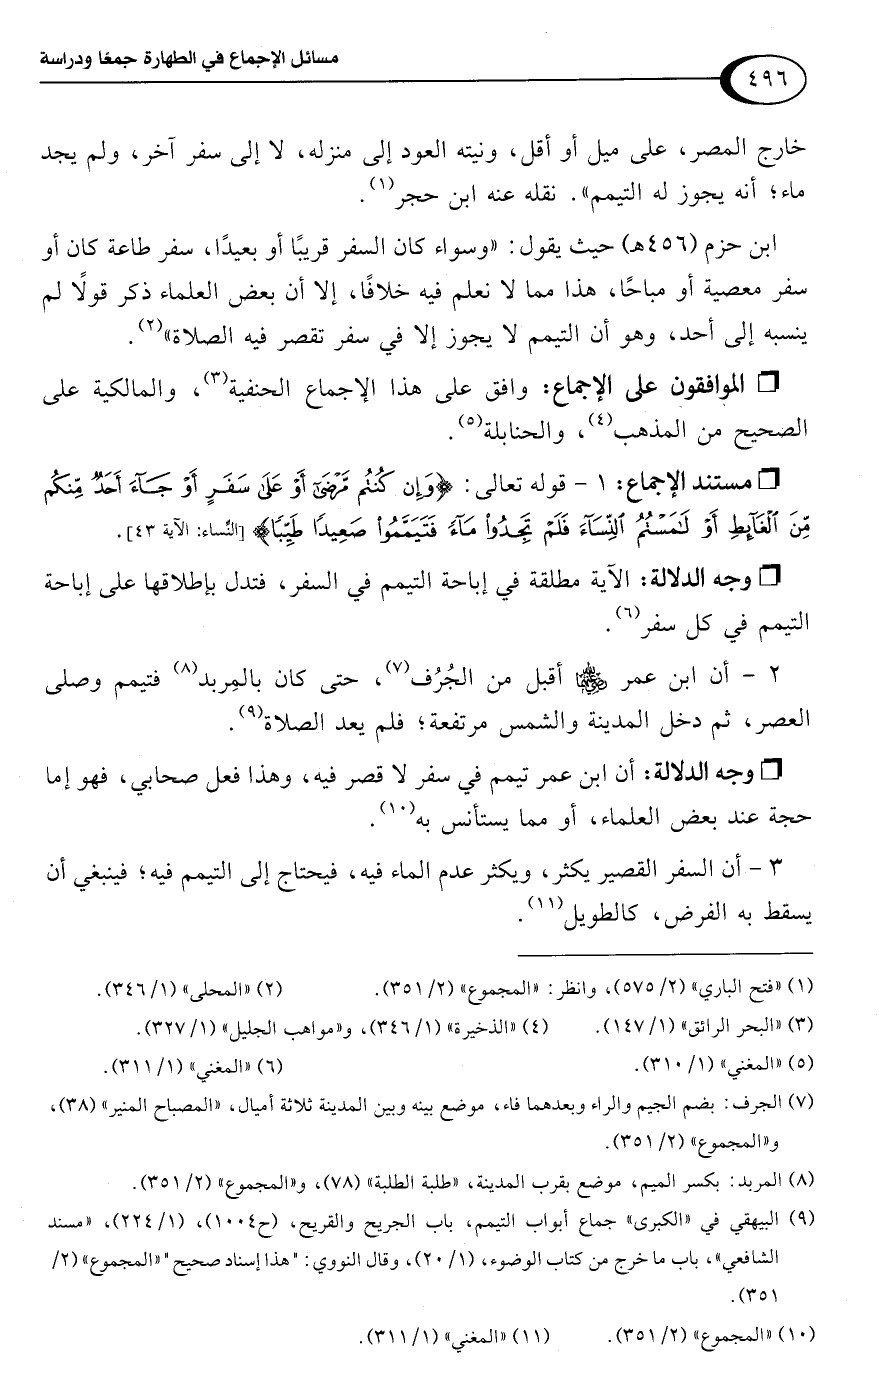 مسائل الإجماع في الطهارة جمعًا ودراسة
٤٩٦
خارج المصر، على ميل أو أقل، ونيته العود إلى منزله، لا إلى سفر آخر، ولم يجد
ماء؛ أنه يجوز له التيمم». نقله عنه ابن حجر(١).
ابن حزم (٤٥٦هـ) حيث يقول: «وسواء كان السفر قريبًا أو بعيدًا، سفر طاعة كان أو
سفر معصية أو مباحًا، هذا مما لا نعلم فيه خلافًا، إلا أن بعض العلماء ذكر قولًا لم
ينسبه إلى أحد، وهو أن التيمم لا يجوز إلا في سفر تقصر فيه الصلاة»(٢).
❒ الموافقون على الإجماع: وافق على هذا الإجماع الحنفية(٣)، والمالكية على
الصحيح من المذهب(٤)، والحنابلة(٥).
❒ مستند الإجماع: ١ - قوله تعالى: ﴿وَإِن كُنتُم مَّرْضَىٰٓ أَوْ عَلَىٰ سَفَرٍ أَوْ جَآءَ أَحَدٌ مِّنكُم
مِّنَ ٱلْغَآئِطِ أَوْ لَٰمَسْتُمُ ٱلنِّسَآءَ فَلَمْ تَجِدُوا۟ مَآءً فَتَيَمَّمُوا۟ صَعِيدًا طَيِّبًا﴾ [النِّساء: الآية ٤٣].
❒ وجه الدلالة: الآية مطلقة في إباحة التيمم في السفر، فتدل بإطلاقها على إباحة
التيمم في كل سفر(٦).
٢ - أن ابن عمر رضي الله عنهما أقبل من الجُرُف(٧)، حتى كان بالمِربد(٨) فتيمم وصلى
العصر، ثم دخل المدينة والشمس مرتفعة؛ فلم يعد الصلاة(٩).
❒ وجه الدلالة: أن ابن عمر تيمم في سفر لا قصر فيه، وهذا فعل صحابي، فهو إما
حجة عند بعض العلماء، أو مما يستأنس به(١٠).
٣ - أن السفر القصير يكثر، ويكثر عدم الماء فيه، فيحتاج إلى التيمم فيه؛ فينبغي أن
يسقط به الفرض، كالطويل(١١).
(١) «فتح الباري» (٢/ ٥٧٥)، وانظر: «المجموع» (٢/ ٣٥١). (٢) «المحلى» (١/ ٣٤٦).
(٣) «البحر الرائق» (١/ ١٤٧). (٤) «الذخيرة» (١/ ٣٤٦)، و«مواهب الجليل» (١/ ٣٢٧).
(٥) «المغني» (١/ ٣١٠). (٦) «المغني» (١/ ٣١١).
(٧) الجرف: بضم الجيم والراء وبعدهما فاء، موضع بينه وبين المدينة ثلاثة أميال، «المصباح المنير» (٣٨)،
و«المجموع» (٢/ ٣٥١).
(٨) المربد: بكسر الميم، موضع بقرب المدينة، «طلبة الطلبة» (٧٨)، و«المجموع» (٢/ ٣٥١).
(٩) البيهقي في «الكبرى» جماع أبواب التيمم، باب الجريح والقريح، (ح١٠٠٤)، (١/ ٢٢٤)، «مسند
الشافعي»، باب ما خرج من كتاب الوضوء، (١/ ٢٠)، وقال النووي: "هذا إسناد صحيح" «المجموع» (٢/
٣٥١).
(١٠) «المجموع» (٢/ ٣٥١). (١١) «المغني» (١/ ٣١١).